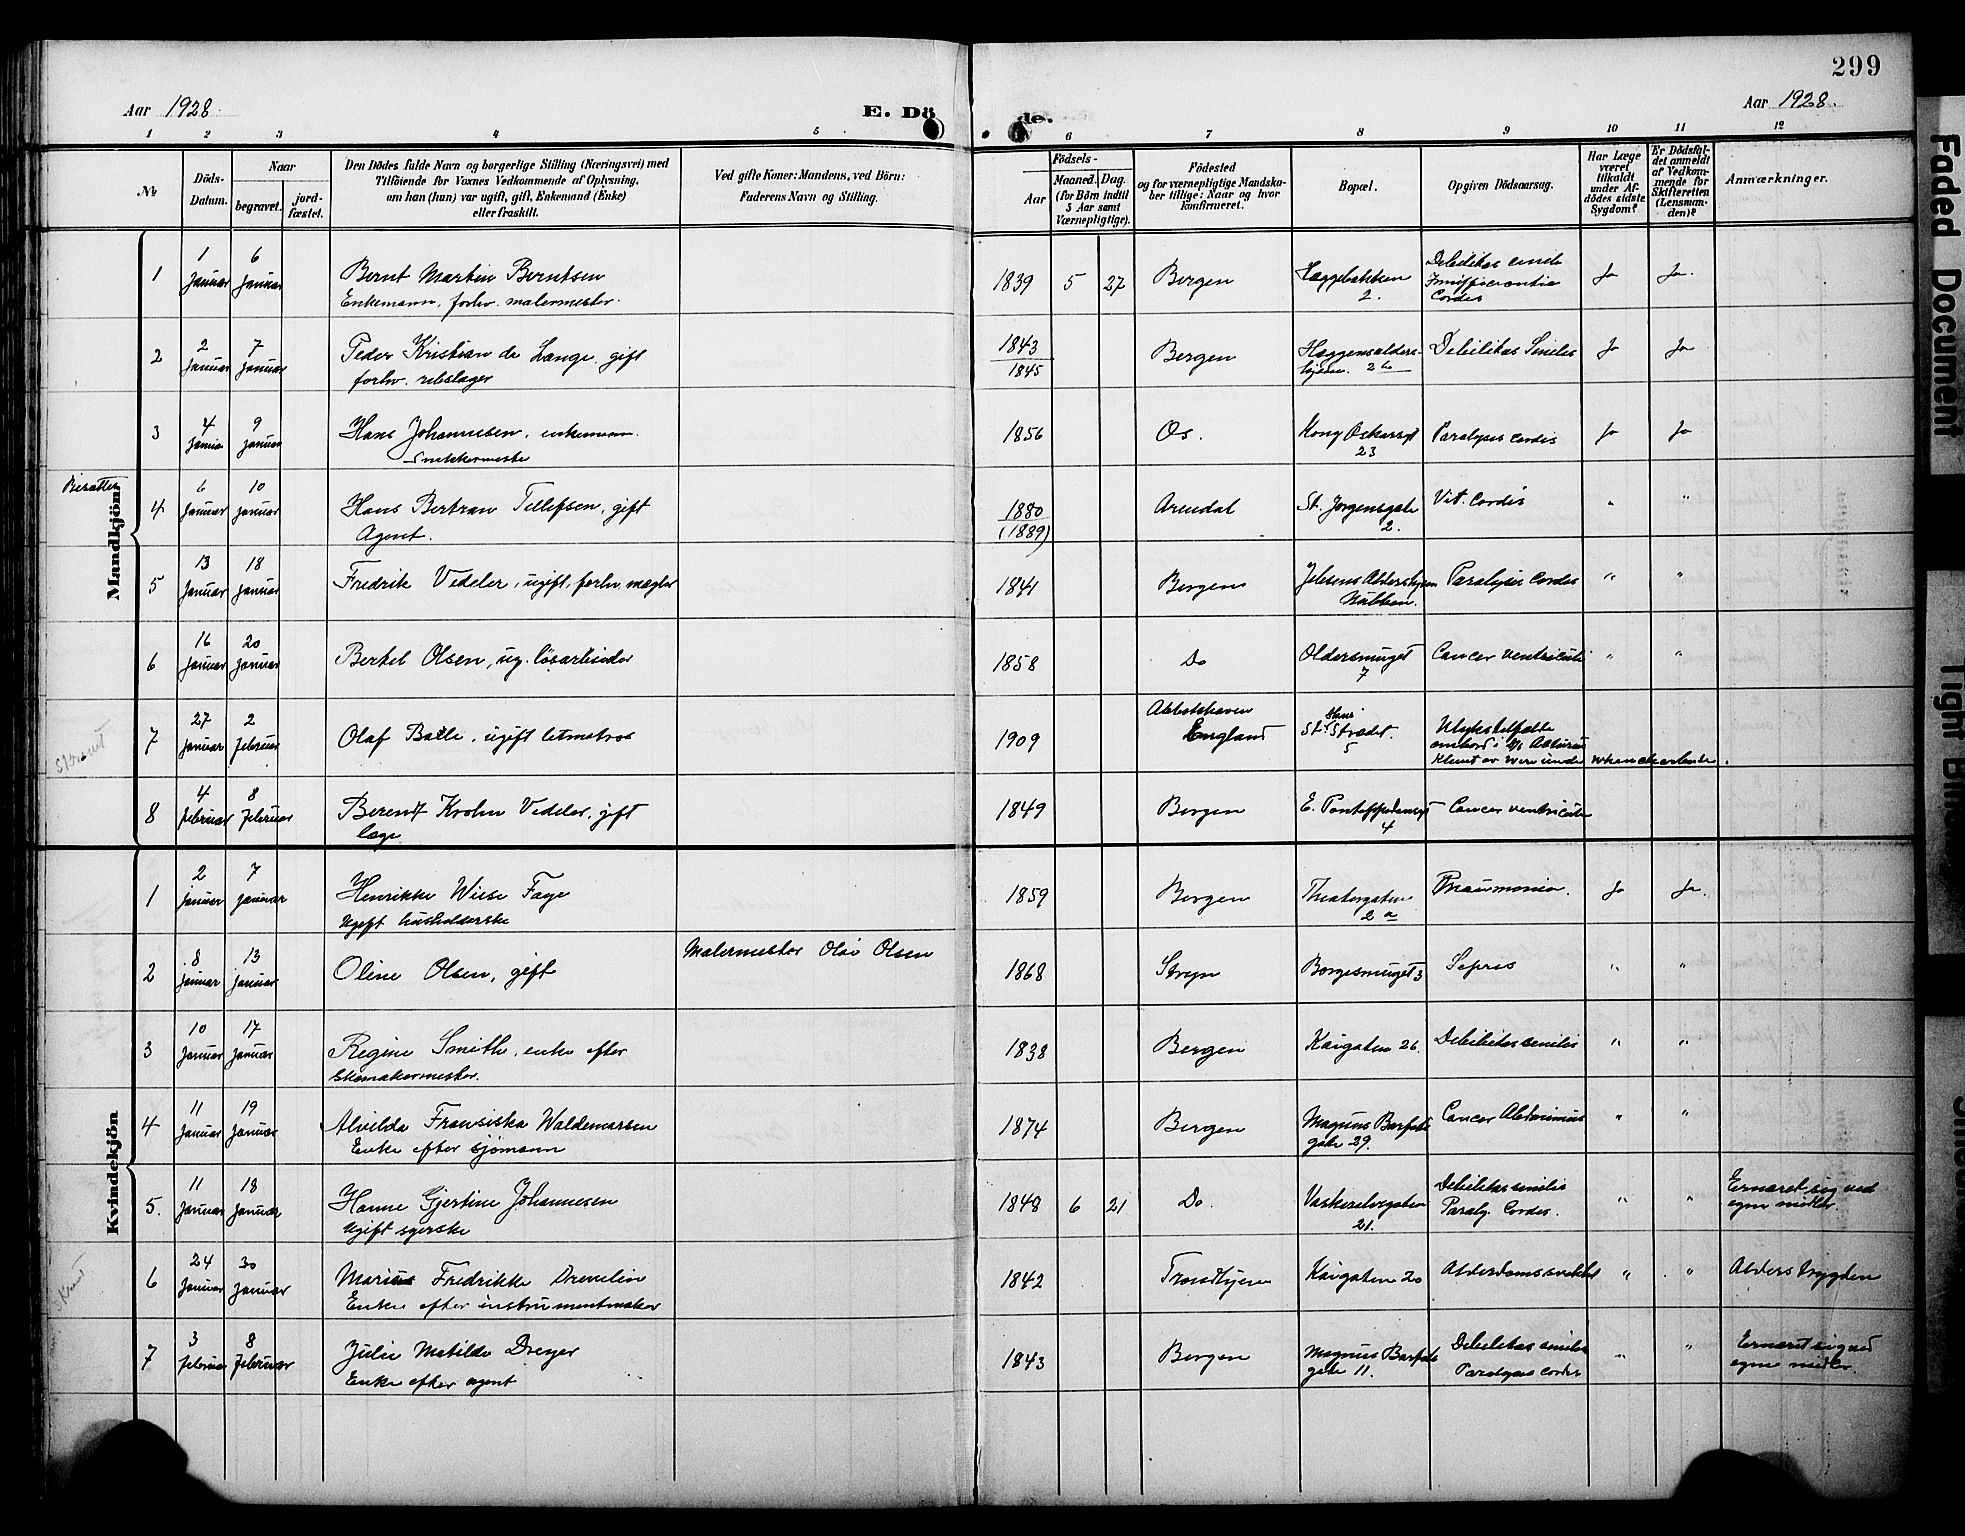 299
Aar 1928
E. Dö
de.
Aar 1928.
1 2 3 4 5 6 7 8 9 10 11 12
No
Döds-
Datum.
Naar
begravet.
jord-
fæstet.
Den Dödes fulde Navn og borgerlige Stilling (Næringsvei) med
Tilföiende for Voxnes Vedkommende af Oplysning,
om han (hun) var ugift, gift, Enkemand (Enke)
eller fraskilt.
Ved gifte Koner: Mandens, ved Börn:
Faderens Navn og Stilling.
Födsels-
Aar
Maaned. Dag.
(for Börn indtil
5 Aar samt
Værnepligtige).
Födested
og for værnepligtige Mandska-
ber tillige: Naar og hvor
konfirmeret.
Bopæl.
Opgiven Dödsaarsag.
Har Læge
været
tilkaldt
under Af-
dödes sidste
Sygdom?
Er Dödsfal-
det anmeldt
af Vedkom-
mende for
Skifteretten
(Lensman-
den)?
Anmærkninger.
Mandkjön
1 1 Januar 6 Januar Bernt Martin Berntsen 1839 5 27 Bergen Heggebakken 2. Debilitas senile Insufficientia Cordis Ja Ja.
Enkemann, forhv. malermester.
2 2 Januar 7 Januar Peder Kristian de Lange, gift 1843 1845 Bergen Debilitas Senilis Ja Ja
forhv. rebslager
3 4 Januar 9 Januar Hans Johannesen, enkemann. 1856 Os. Kong Oskarsgt 23 Paralysis cordis Ja Ja
Snekkermester
4 6 Januar 10 Januar Hans Bertran Tellefsen, gift 1880 (1889) Arendal St. Jørgensgate 2. Vit. Cordis " "
Agent.
5 13 Januar 18 Januar Fredrik Vedeler, ugift, forhv. megler 1841 Bergen Jebsens Aldershjem Nubben. Paralysis Cordis " "
6 16 Januar 20 Januar Bertel Olsen, ug. løsarbeider 1858 Do Oldersmuget 7 Cancer ventriculi " "
7 27 Januar 2 Februar Olaf Balle, ugift letmatros 1909 England St. Hans Strædet. 5 Ulykkestilfælde
ombord i
Klemt av
8 4 Februar 8 Februar Berent Krohn Vedeler, gift 1849 Bergen E. Pontoppidansgt 4 Cancer ventriculi
læge
Kvindekjön
1 2 Januar 7 Januar Henrikke Wiese Faye 1859 Bergen Theatergaten 2 a Pneumonia. Ja Ja.
Ugift husholderske
2 8 Januar 13 Januar Oline Olsen, gift Malermester Olai Olsen 1868 Stryn Borgesmuget 3 Sepsis " "
3 10 Januar 17 Januar Regine Smith, enke efter 1838 Bergen Kaigaten 26. Debilitas senilis " "
skomakermester.
4 11 Januar 19 Januar Alvilda Fransiska Waldemarsen 1874 Bergen Magnus Barfots gate 29. Cancer Abdominis " "
Enke efter sjømann
5. 11 Januar 18 Januar Hanne Gjertine Johannesen 1848 6 21 Do. Vaskerelvgaten 21. Debilitas senilis Paraly. Cordis. " " Ernæret sig ved
egne midler.
Ugift syerske
6 24 Januar 30 Januar Fredrikke Drevelin 1842 Trondhjem Kaigaten 20 Alderdomssvakhet " " Alderstrygden
Enke efter instrumentmaker
7 3 Februar 8 Februar Julie Matilde Dreyer 1843 Bergen Magnus Barfots gate 11. Debilitas senilis Paralysis cordis " " Ernæret sig ved
egne midler.
Enke efter agent
Faded Document
Tight Bindi